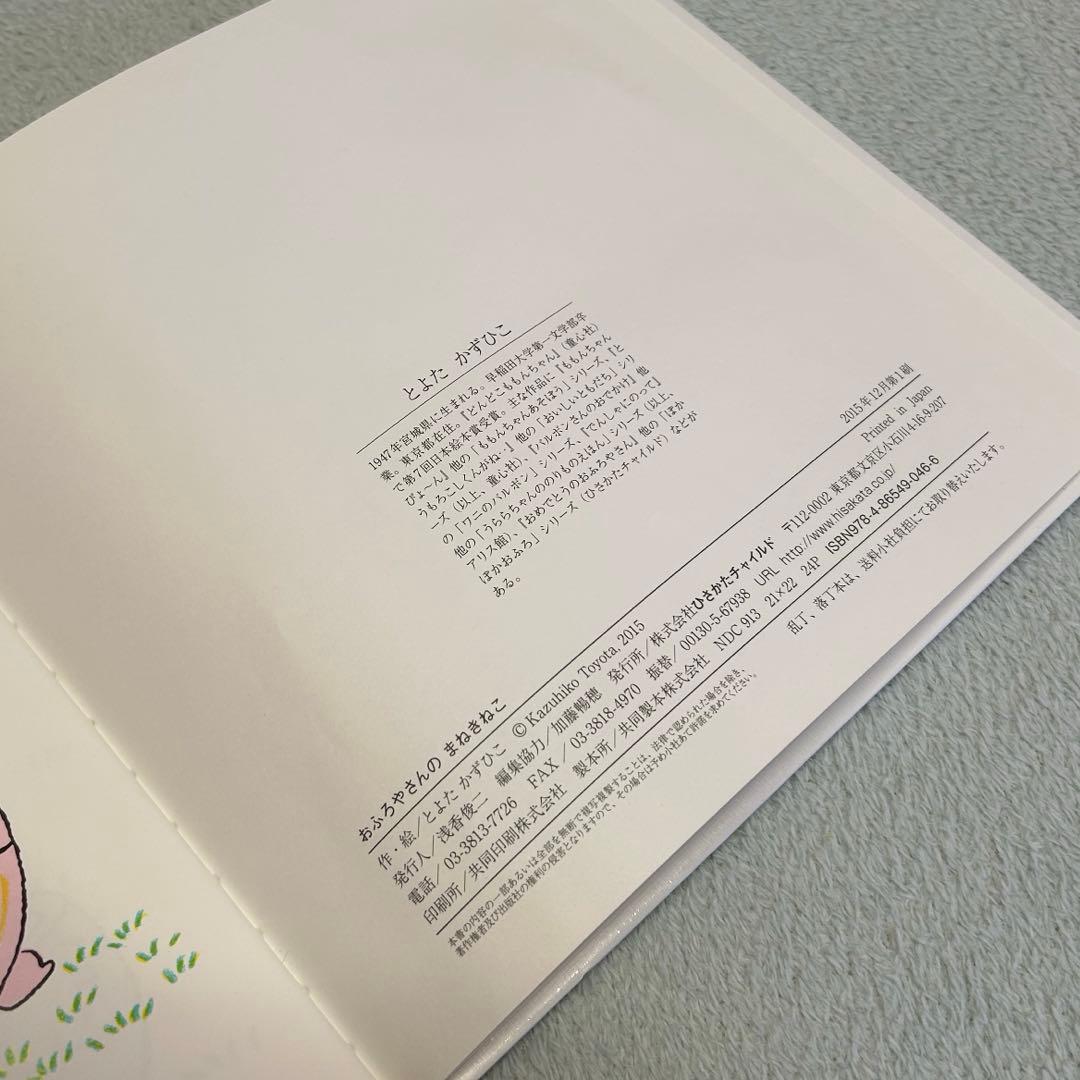 とよた かずひこ
1947年宮城県に生まれる。早稲田大学第一文学部卒
業。東京都在住。『どんどこ ももんちゃん』(童心社)
で第7回日本絵本賞受賞。主な作品に『ももんちゃん
ぴょ〜ん』他の「ももんちゃんあそぼう」シリーズ、『と
うもろこしくんがね‥』他の「おいしいともだち」シリ
ーズ(以上、童心社)、『バルボンさんのおでかけ』他
の「ワニのバルボン」シリーズ、『でんしゃにのって』
他の「うららちゃんののりものえほん」シリーズ(以上、
アリス館)、『おめでとうのおふろやさん』他の「ぽか
ぽかおふろ」シリーズ(ひさかたチャイルド)などが
ある。
おふろやさんの まねきねこ
2015年12月第1刷
作・絵/とよた かずひこ © Kazuhiko Toyota, 2015
Printed in Japan
発行人/浅香俊二 編集協力/加藤暢穂 発行所/株式会社ひさかたチャイルド 〒112-0002 東京都文京区小石川4-16-9-207
電話/03-3813-7726 FAX/03-3818-4970 振替/00130-5-67938 URL http://www.hisakata.co.jp/
印刷所/共同印刷株式会社 製本所/共同製本株式会社 NDC 913 21×22 24P ISBN978-4-86549-046-6
本書の内容の一部あるいは全部を無断で複写複製することは、法律で認められた場合を除き、
著作権者及び出版社の権利の侵害となりますので、その場合は予め小社あて許諾を求めてください。
乱丁、落丁本は、送料小社負担にてお取り替えいたします。